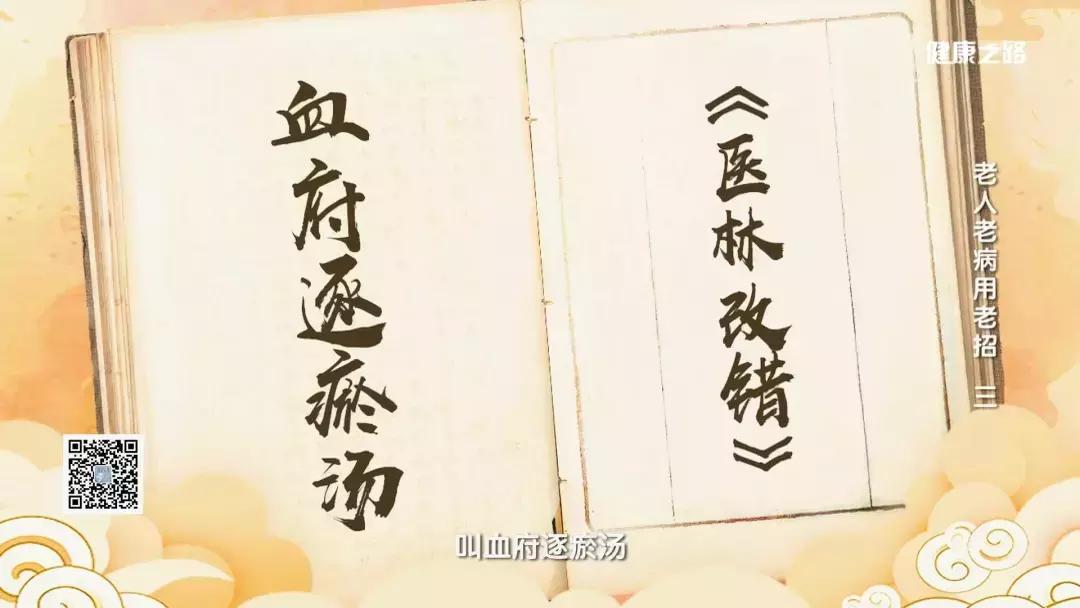 健康之路
老人老病用老招 三
《医林改错》
血府逐瘀汤
叫血府逐瘀汤